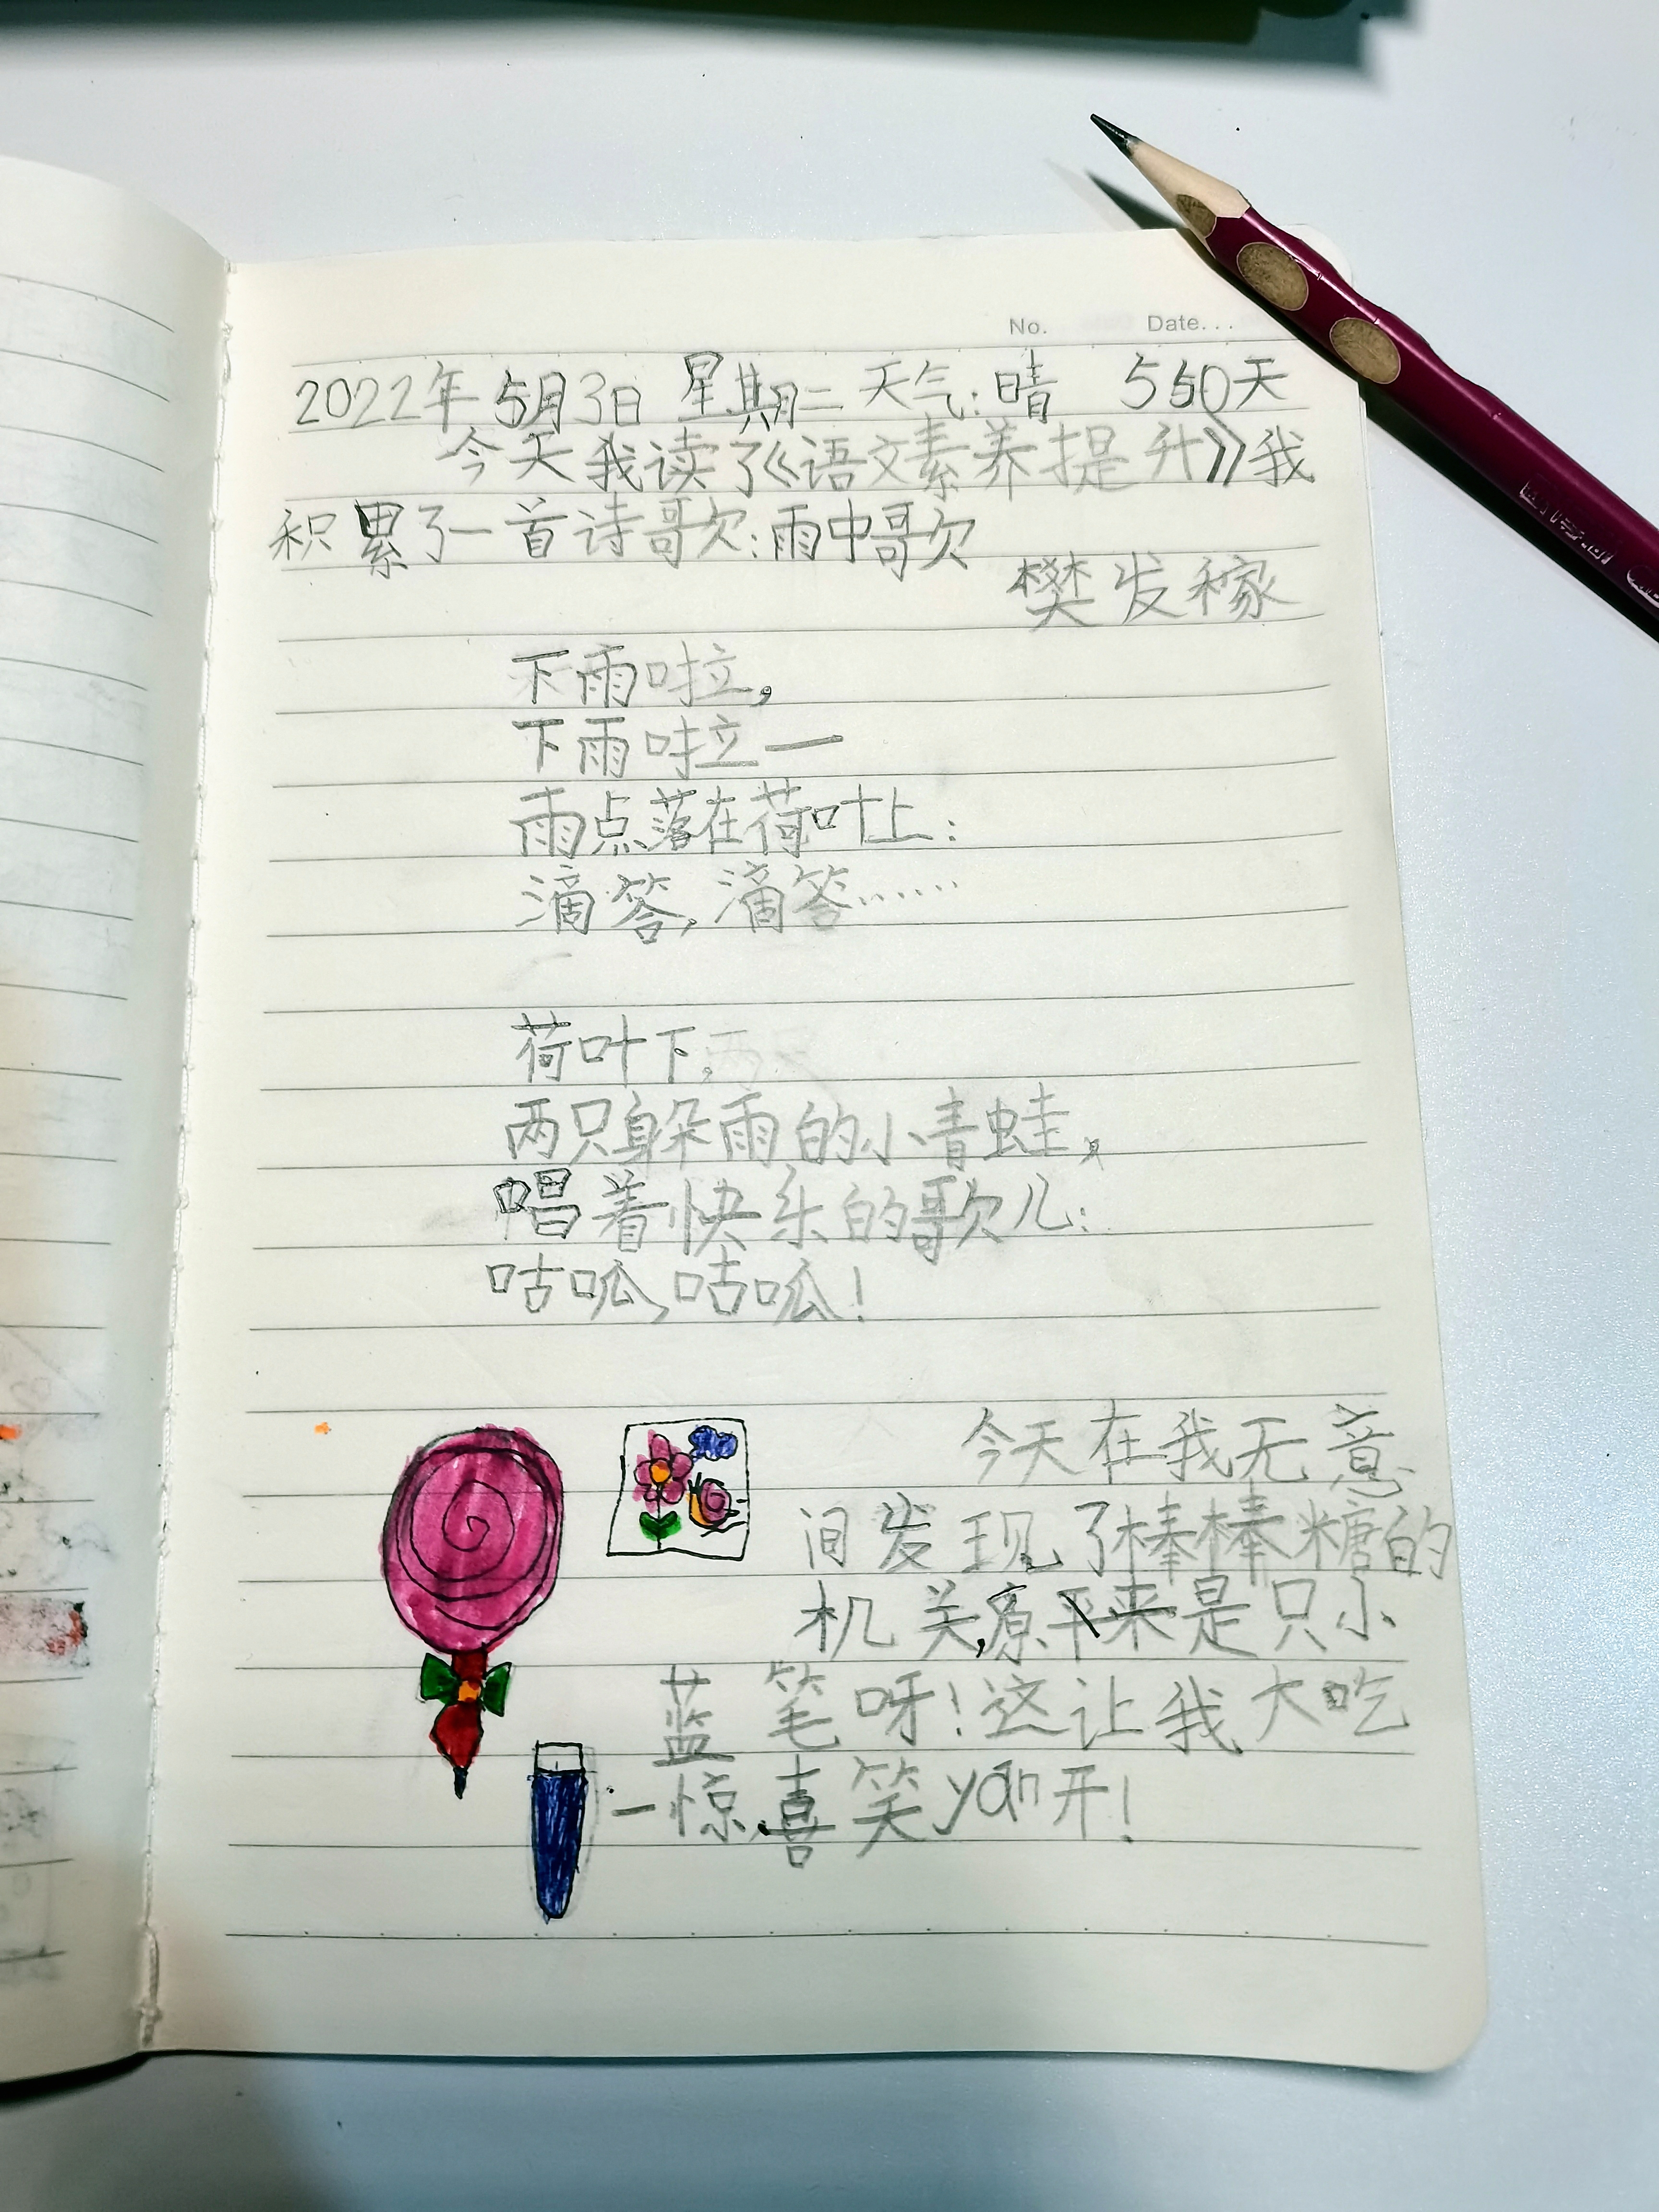 No. Date...
2022年5月3日 星期二 天气:晴 550天
今天我读了《语文素养提升》我
积累了一首诗歌:雨中歌
樊发稼
下雨啦,
下雨啦一
雨点落在荷叶上:
滴答,滴答……
荷叶下,
两只躲雨的小青蛙,
唱着快乐的歌儿:
咕呱,咕呱!
今天在我无意
间发现了棒棒糖的
机关,原来是只小
蓝笔呀!这让我大吃
一惊,喜笑yán开!